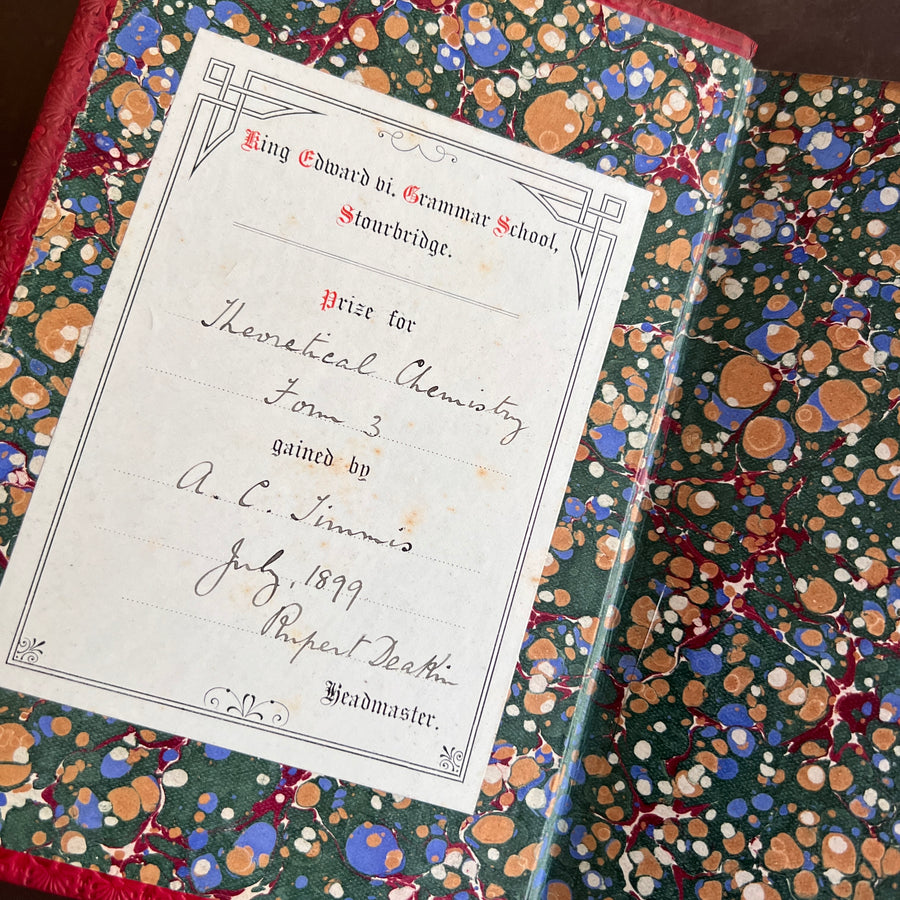 King Edward vi. Grammar School,
Stourbridge.
Prize for
Theoretical Chemistry
Form 3
gained by
A. C. Timmis
July, 1899
Rupert Deakin
Headmaster.